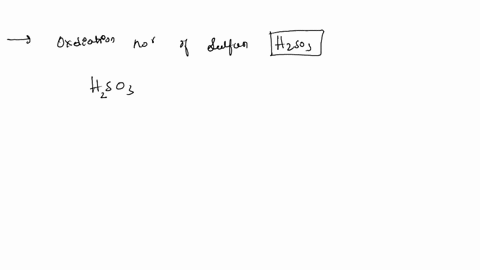 → Oxidation no. of Sulfur H₂SO₃
H₂SO₃